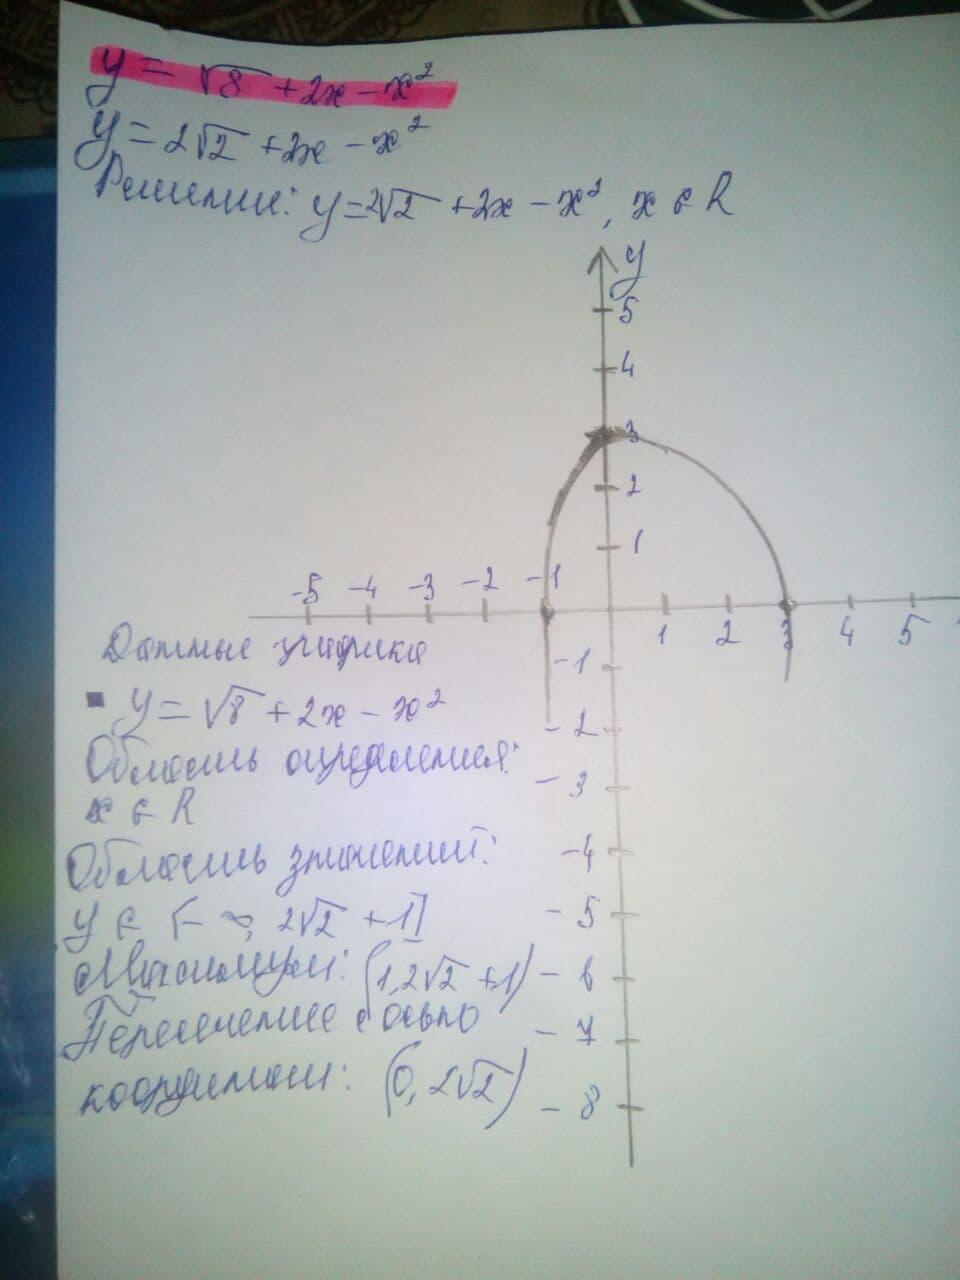 y = √8 + 2x - x²
y = 2√2 + 2x - x²
Решение: y = 2√2 + 2x - x², x ∈ R
y
5
4
3
2
1
-5 -4 -3 -2 -1
1 2 3 4 5
Данные графика
-1
▪ y = √8 + 2x - x²
-2
Область определения:
-3
x ∈ R
Область значений:
-4
y ∈ [-∞, 2√2 + 1]
-5
Максимум: (1, 2√2 + 1)
-6
Пересечение с осью
-7
координат: (0, 2√2)
-8